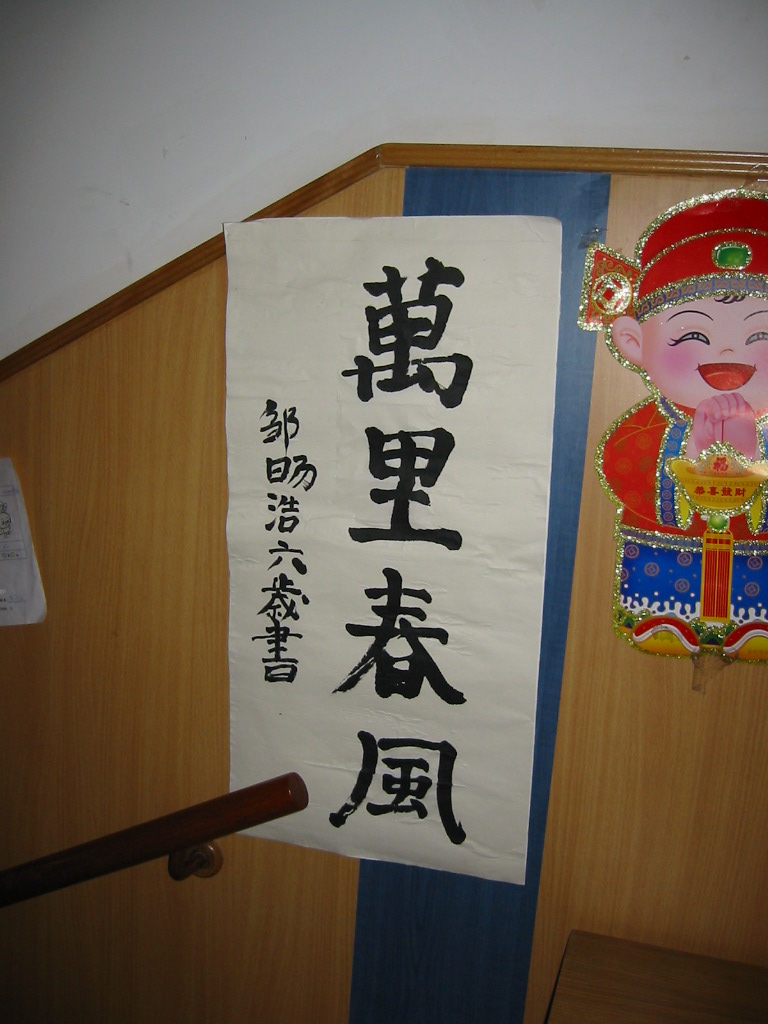 萬里春風
邹旸浩六歲書
福
恭喜發財